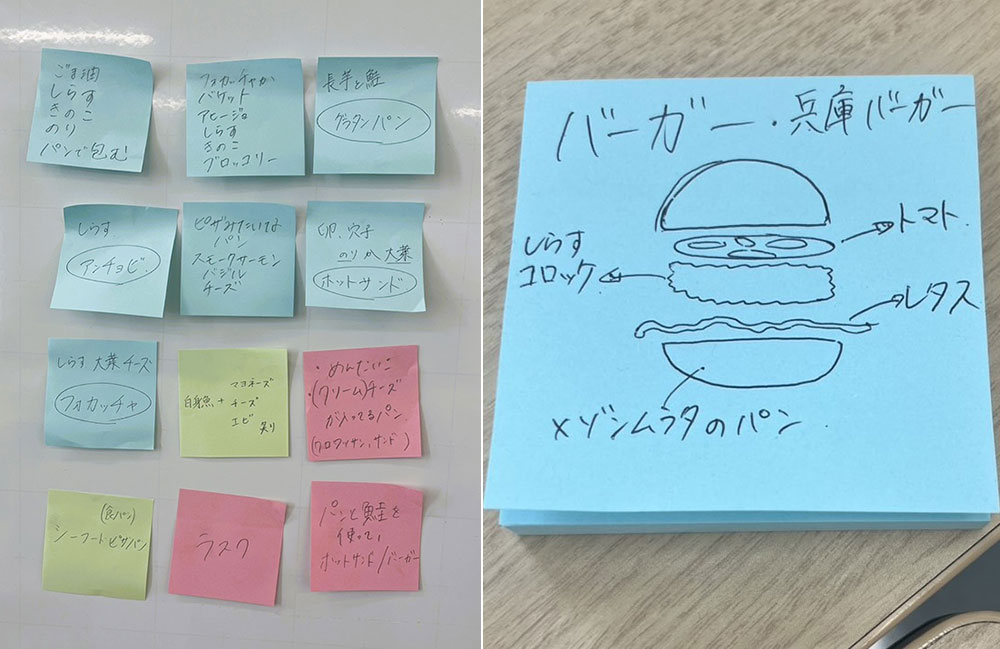 ごま油
しらす
きのこ
のり
パンで包む
フォカッチャか
バケット
アヒージョ
しらす
きのこ
ブロッコリー
長芋と鮭
グラタンパン
しらす
アンチョビ
ピザみたいな
パン
スモークサーモン
バジル
チーズ
卵、穴子
のりか大葉
ホットサンド
しらす 大葉 チーズ
フォカッチャ
マヨネーズ
白身魚 + チーズ
エビ
・めんたいこ
・(クリーム)チーズ
が入ってるパン
(クロワッサン、サンド)
(食パン)
シーフードピザパン
ラスク
パンと鮭を
使って、
ホットサンド/バーガー
バーガー・兵庫バーガー
トマト
しらす
コロッケ
レタス
メゾンムラタのパン